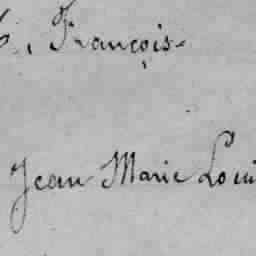 François
Jean Marie Loui